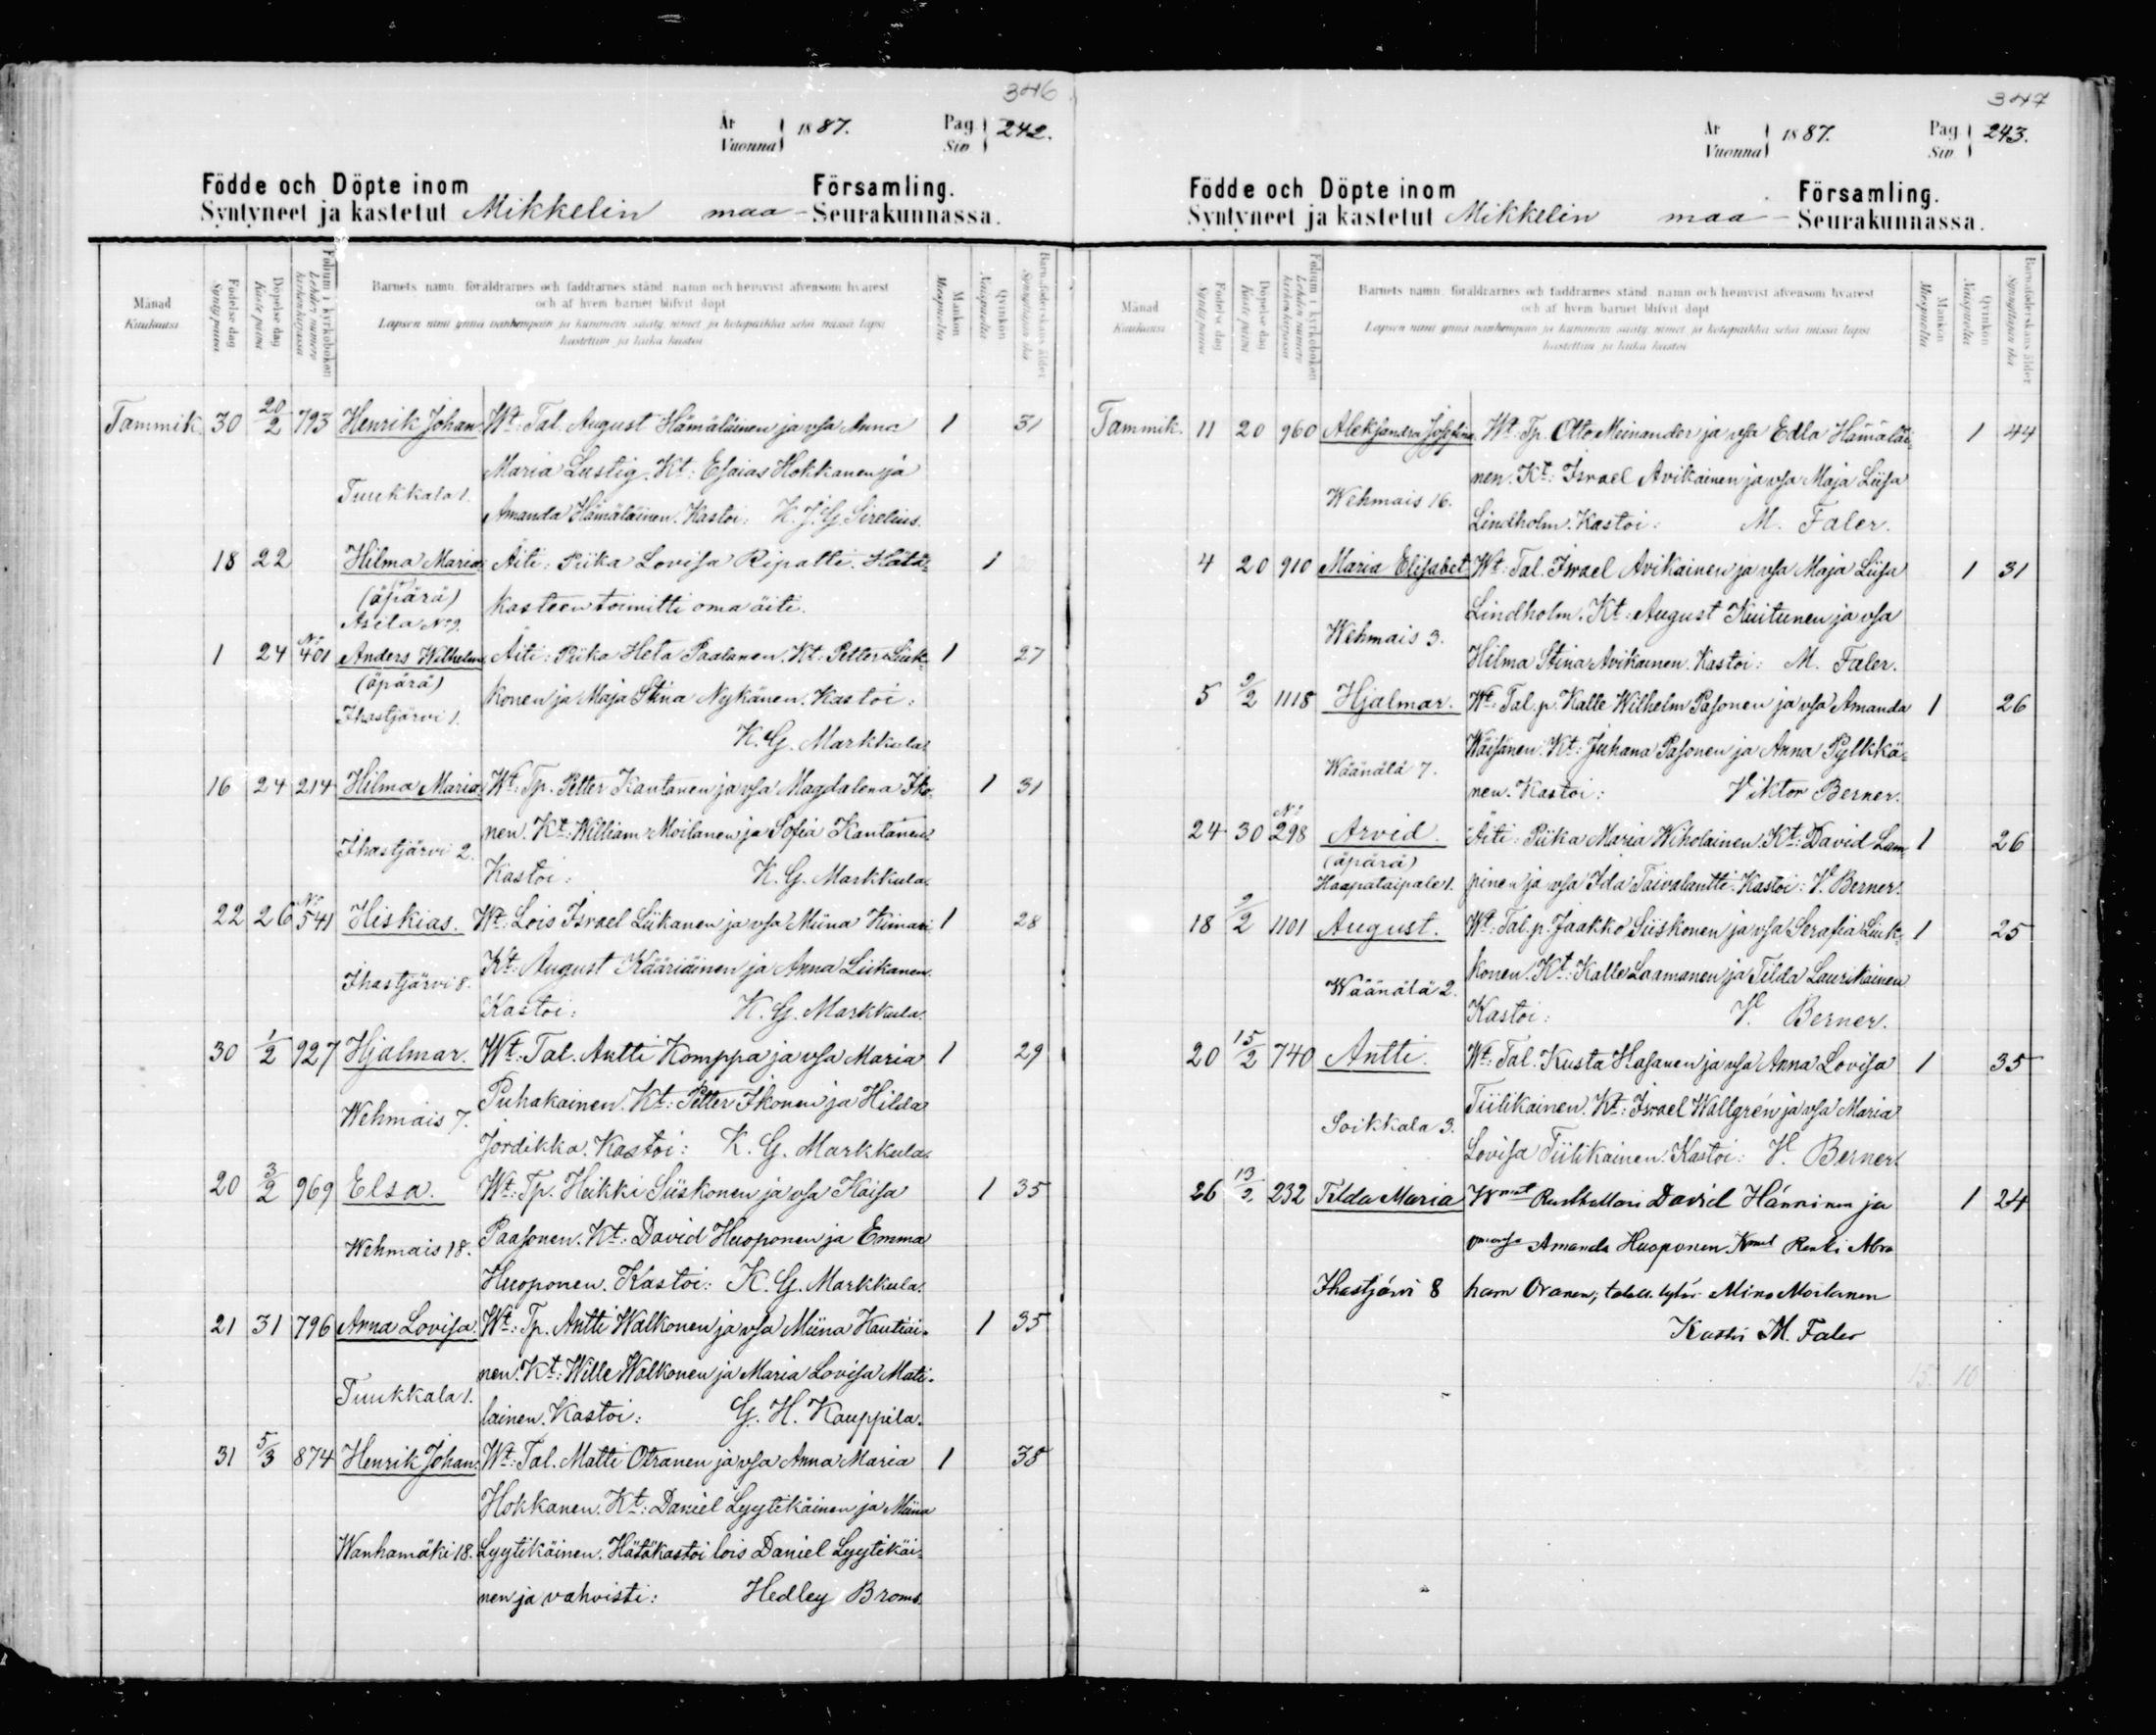 346
År
Vuonna
1887.
Pag
Siv
242.
Födde och Döpte inom Församling.
Syntyneet ja kastetut Mikkelin maa-Seurakunnassa.
Månad
Kuukausi
Födelse dag
Syntypäivä
Döpelse dag
Kastepäivä
Folium i kyrkoboken
Lehden numero
kirkonkirjassa
Barnets namn, föräldrarnes och faddrarnes stånd, namn och hemvist äfvensom hvarest
och af hvem barnet blifvit döpt
Lapsen nimi ynnä vanhempain ja kummein sääty, nimet ja kotopaikka sekä missä lapsi
kastettiin ja kuka kastoi
Mankön
Miespuolia
Qvinkön
Naispuolia
Barnaföderskans ålder
Synnyttäjän ikä
Tammik. 30 20/2 793 Henrik Johan Wt: Tal. August Hämäläinen ja vsa Anna 1 31
Maria Lustig. Kt: Esaias Hokkanen ja
Tuukkala 1.
Amanda Hämäläinen. Kastoi: K. J. G. Sirelius.
18 22 Hilma Maria Äiti: Piika Lovisa Ripatti. Hätä- 1
(äpärä) kasteen toimitti oma äiti.
Asila No 9.
1 24 No 401 Anders Wilhelm Äiti: Piika Heta Paalanen. Kt: Petter Liuk- 1 27
(äpärä)
konen ja Maja Stina Nykänen. Kastoi:
Ihastjärvi 1.
K. G. Markkula.
16 24 214 Hilma Maria Wt: Tp. Petter Kautanen ja vsa Magdalena Iko- 1 31
nen. Kt: William Moilanen ja Sofia Kautanen.
Ihastjärvi 2.
Kastoi: K. G. Markkula.
22 26 No 541 Hiskias. Wt: Lois Israel Liikanen ja vsa Miina Kiimari 1 28
Kt: August Kääriäinen ja Anna Liikanen.
Ihastjärvi 8.
Kastoi: K. G. Markkula.
30 1/2 927 Hjalmar. Wt: Tal. Antti Komppa ja vsa Maria 1 29
Puhakainen. Kt: Petter Ikonen ja Hilda
Wehmais 7.
Jordikka. Kastoi: K. G. Markkula.
20 3/2 969 Elsa. Wt: Tp. Heikki Siiskonen ja vsa Kaisa 1 35
Paasonen. Kt: David Huoponen ja Emma
Wehmais 18.
Huoponen. Kastoi: K. G. Markkula.
21 31 796 Anna Lovisa. Wt: Tp. Antti Walkonen ja vsa Miina Hautiai- 1 35
nen. Kt: Wille Walkonen ja Maria Lovisa Mati-
Tuukkala 1.
lainen. Kastoi: G. H. Kauppila.
31 5/3 874 Henrik Johan Wt: Tal. Matti Otranen ja vsa Anna Maria 1 38
Hokkanen. Kt: Daniel Lyytikäinen ja Miina
Wanhamäki 18. Lyytikäinen. Hätäkastoi lois Daniel Lyytikäi-
nen ja vahvisti: Hedley Broms.
347
År
Vuonna
1887.
Pag
Siv
243.
Födde och Döpte inom Församling.
Syntyneet ja kastetut Mikkelin maa-Seurakunnassa.
Månad
Kuukausi
Födelse dag
Syntypäivä
Döpelse dag
Kastepäivä
Folium i kyrkoboken
Lehden numero
kirkonkirjassa
Barnets namn, föräldrarnes och faddrarnes stånd, namn och hemvist äfvensom hvarest
och af hvem barnet blifvit döpt
Lapsen nimi ynnä vanhempain ja kummein sääty, nimet ja kotopaikka sekä missä lapsi
kastettiin ja kuka kastoi
Mankön
Miespuolia
Qvinkön
Naispuolia
Barnaföderskans ålder
Synnyttäjän ikä
Tammik. 11 20 960 Aleksandra Josefina Wt: Tp. Otto Meinander ja vsa Edla Hämäläi- 1 44
nen. Kt: Israel Avikainen ja vsa Maja Liisa
Wehmais 16.
Lindholm. Kastoi: M. Faler.
4 20 910 Maria Elisabet Wt: Tal. Israel Avikainen ja vsa Maja Liisa 1 31
Lindholm. Kt: August Kuitunen ja vsa
Wehmais 3.
Hilma Stina Avikainen. Kastoi: M. Faler.
5 2/2 1118 Hjalmar. Wt: Tal. p. Kalle Wilhelm Pasonen ja vsa Amanda 1 26
Wäisänen. Kt: Juhana Pasonen ja Anna Pylkkä-
Wäänälä 7.
nen. Kastoi: Viktor Berner.
24 30 No 298 Arvid. Äiti: Piika Maria Wiholainen. Kt: David Lam- 1 26
(äpärä)
Haapataipale 1. pinen ja vsa Ida Taivalantti. Kastoi: V. Berner.
18 2/2 1101 August. Wt: Tal. p. Jaakko Siiskonen ja vsa Serafia Liuk- 1 25
konen. Kt: Kalle Laamanen ja Tilda Laurikainen
Wäänälä 2.
Kastoi: V. Berner.
20 15/2 740 Antti. Wt: Tal. Kusta Hasanen ja vsa Anna Lovisa 1 35
Tiilikainen. Kt: Israel Wallgrén ja vsa Maria
Soikkala 3.
Lovisa Tiilikainen. Kastoi: V. Berner.
26 13/2. 232 Tilda Maria Wmat Rusthollari David Hänninen ja 1 24
Amanda Huoponen. Kmat Renki Abra
Ihastjärvi 8 ham Oranen, taloll. tytär Mina Moilanen
Kastoi M. Faler
15. 10